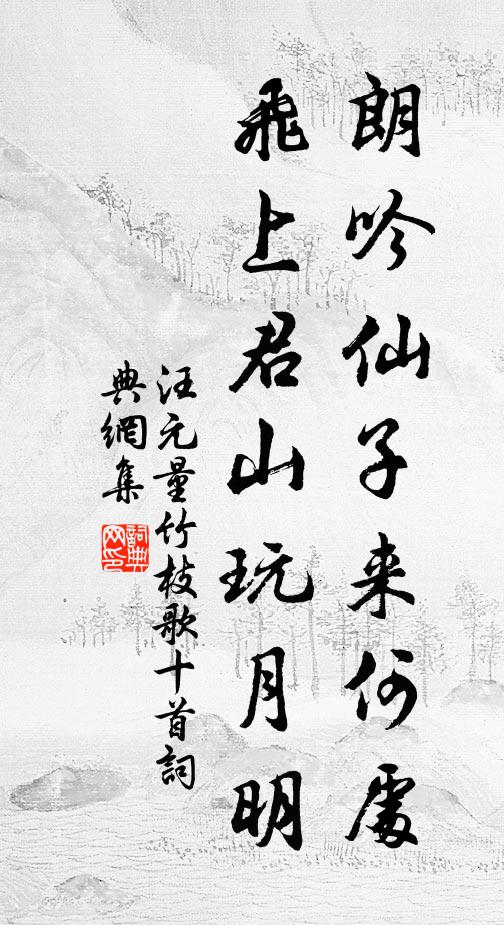 朗吟仙子来何處
飛上君山玩月明
汪元量竹枝歌十首詞
典網集
詞典網印